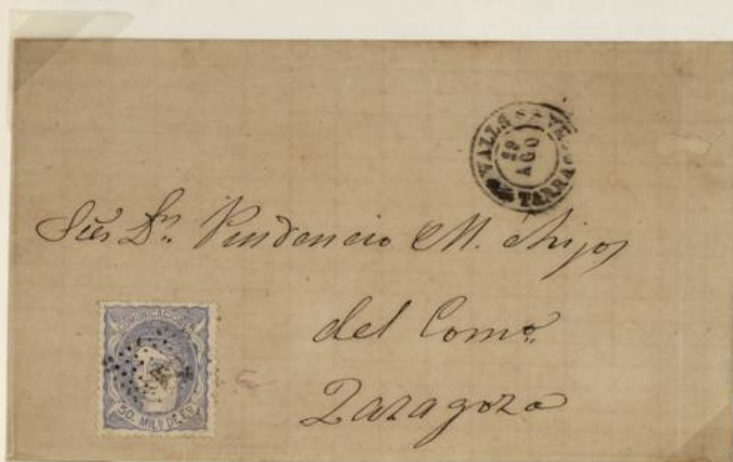 VALLS
29
AGO
TARRAG
Sres Dn. Prudencio M. é hijos
del Como.
Zaragoza
COMUNICACIONES
50. MILS DE EO